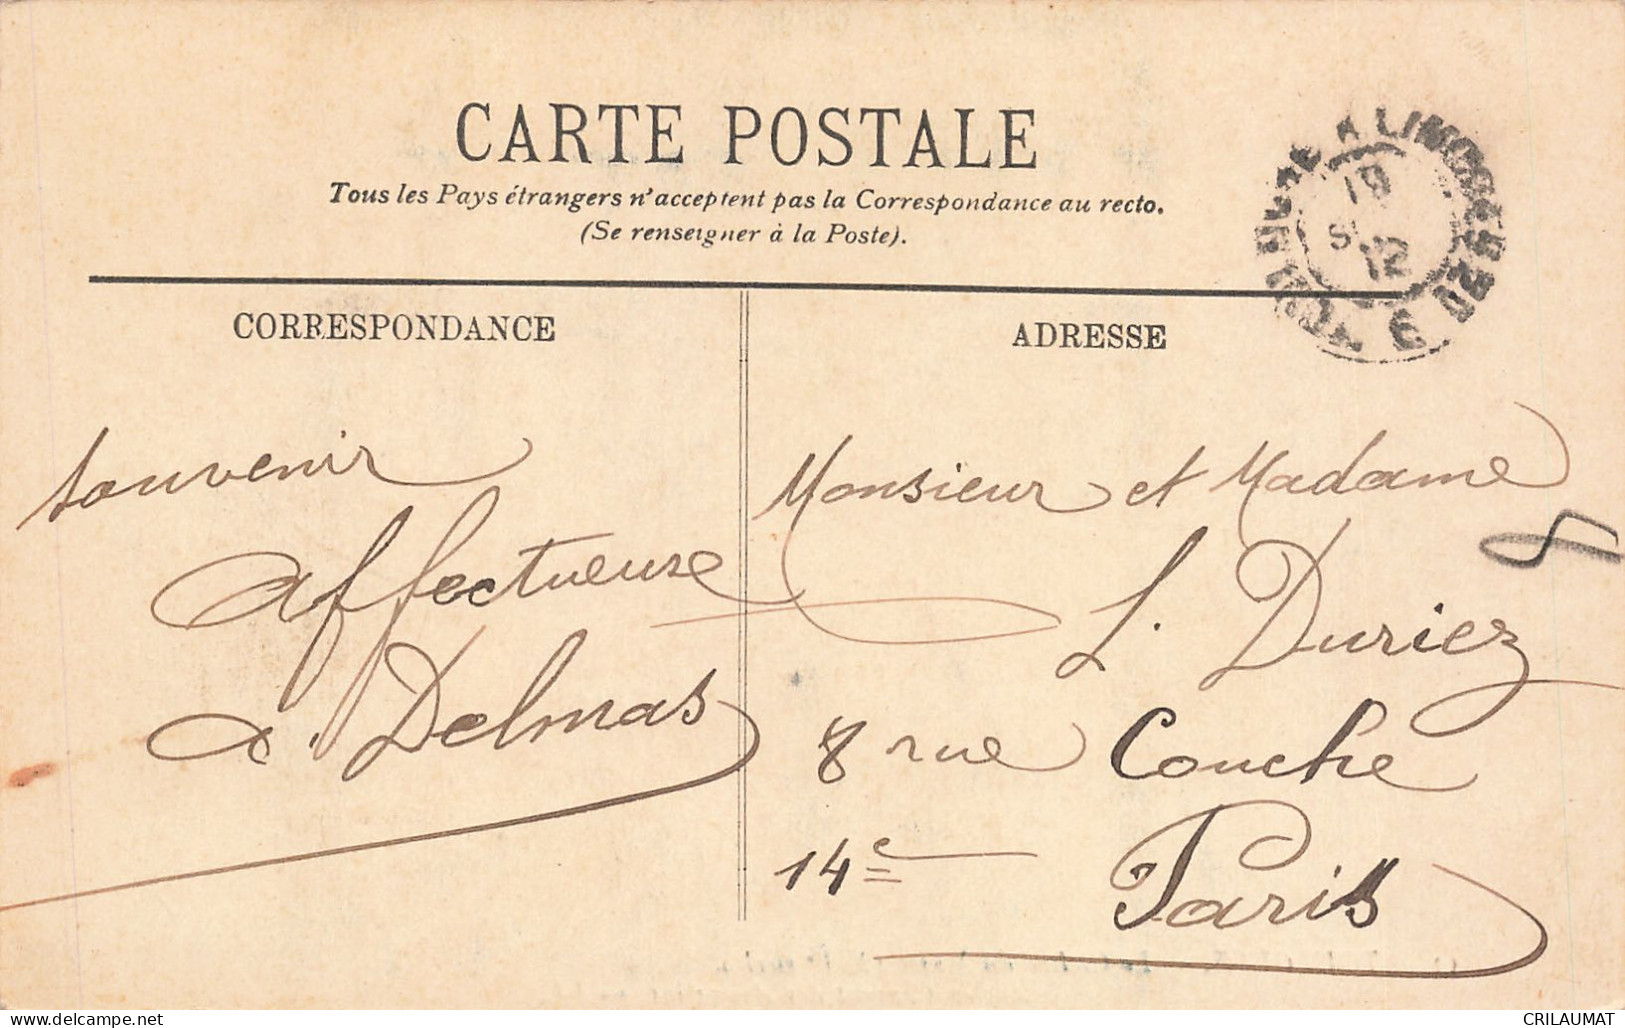 CARTE POSTALE
Tous les Pays étrangers n'acceptent pas la Correspondance au recto.
(Se renseigner à la Poste).
CORRESPONDANCE
ADRESSE
A LIMOGES
19
12
souvenir
affectueuse
a. Delmas
Monsieur et Madame
L. Duriez
8 rue Couche
14e
Paris
8
www.delcampe.net
CRILAUMAT